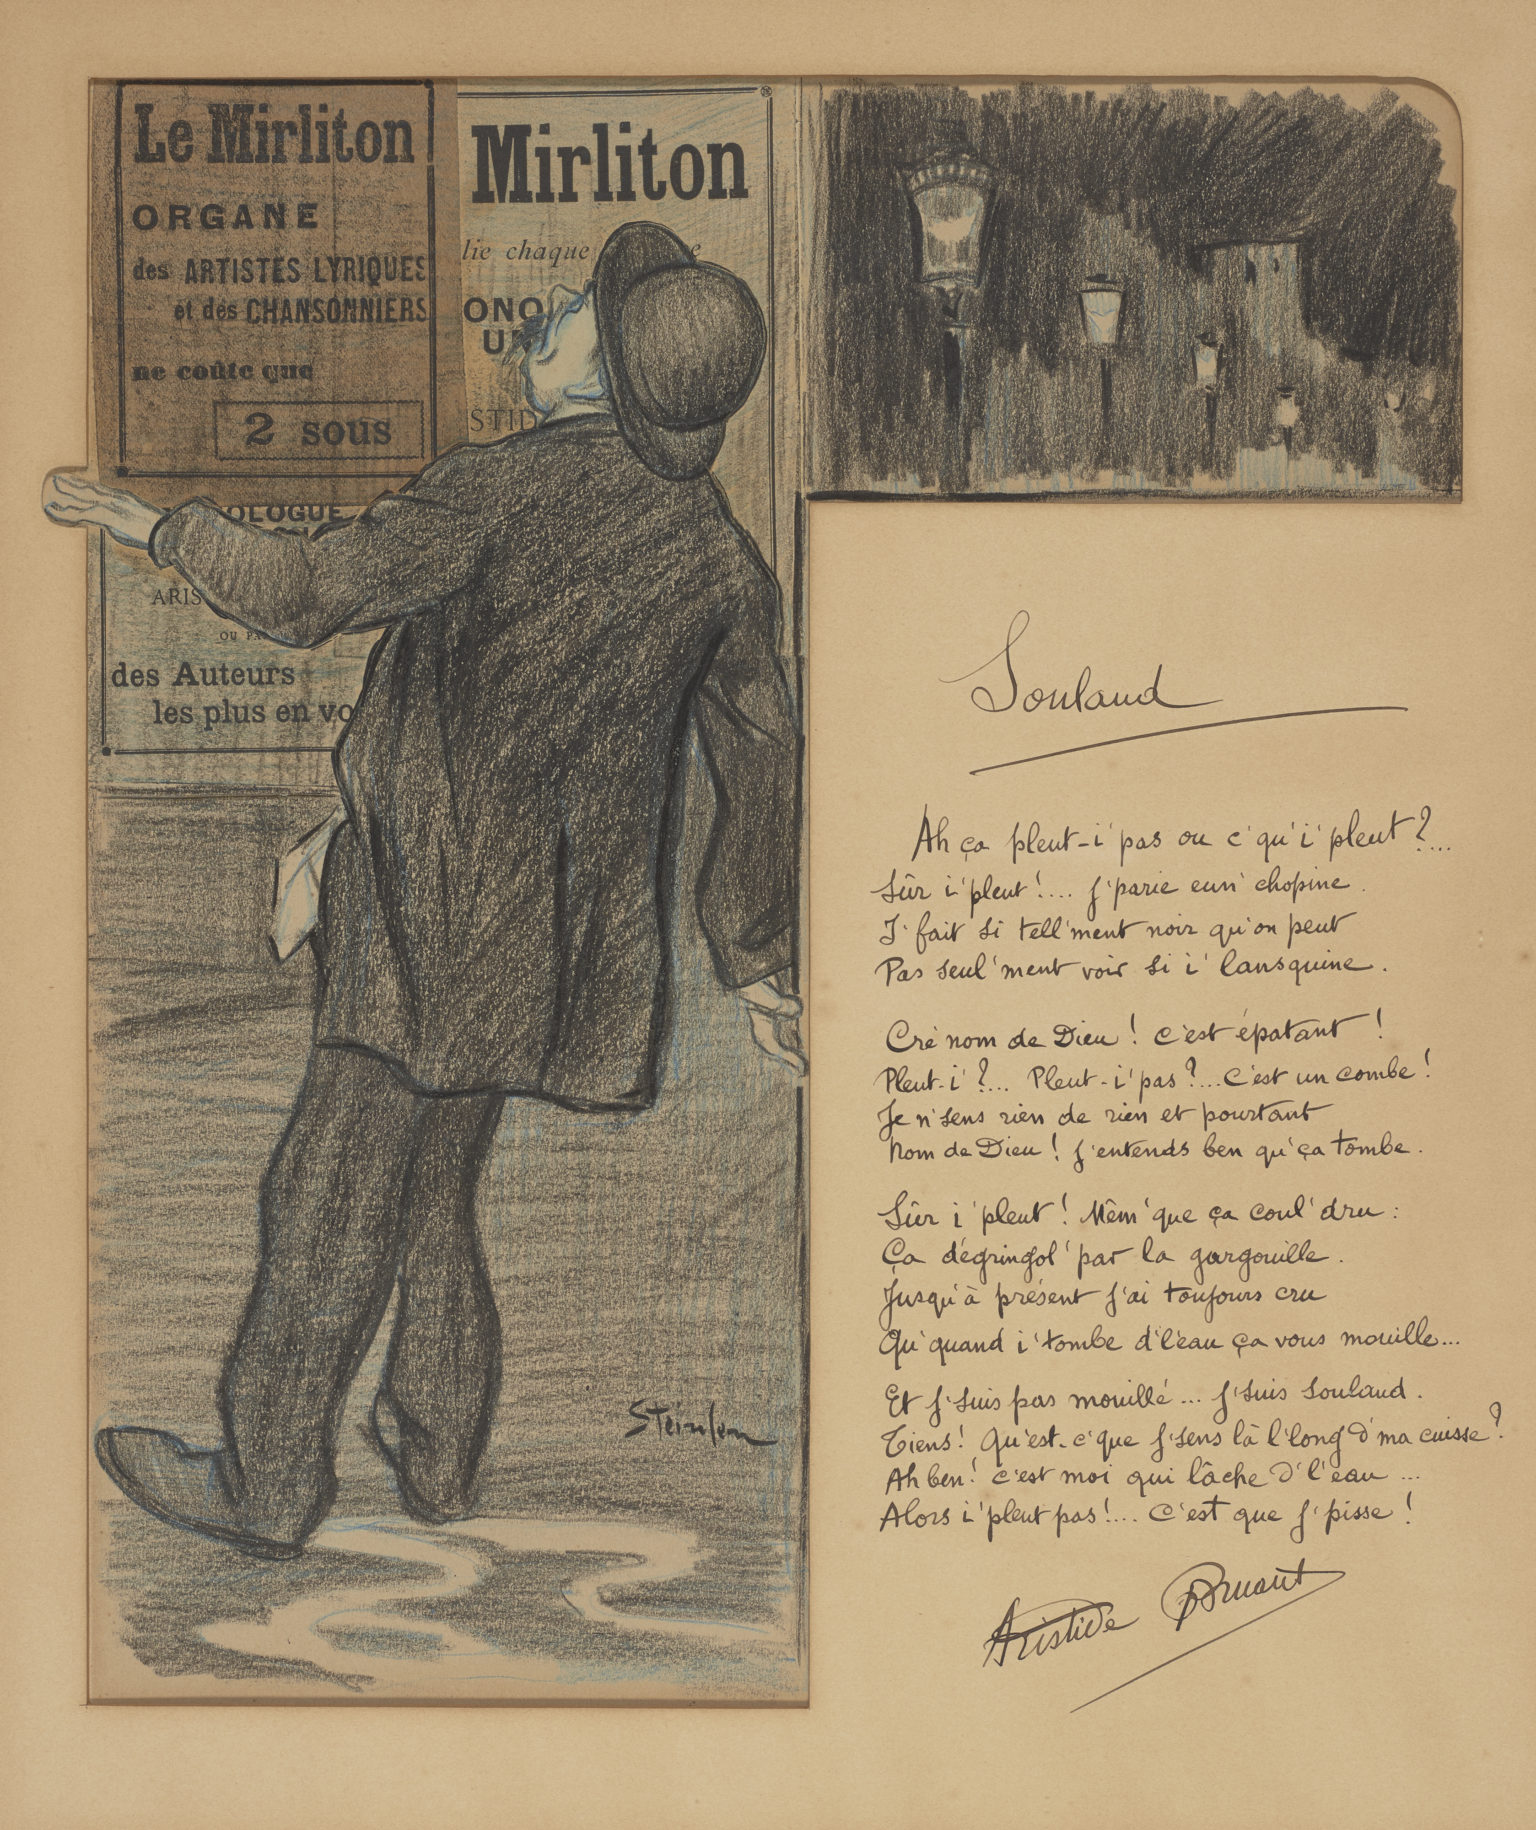 Le Mirliton
ORGANE
des ARTISTES LYRIQUES
et des CHANSONNIERS
ne coûte que
2 sous
Mirliton
lie chaque
ONO
STID
OLOGUE
ARIS
OU PA
des Auteurs
les plus en vo
Steinlen
Soulaud
Ah ça pleut-i' pas ou c'qu'i' pleut ?...
Sûr i' pleut !.... J'parie eun' chopine.
I' fait si tell'ment noir qu'on peut
Pas seul'ment voir si i' lansquine.
Cré nom de Dieu ! c'est épatant !
Pleut-i' ?... Pleut-i' pas ?... C'est un combe !
Je n'sens rien de rien et pourtant
Nom de Dieu ! j'entends ben qu'ça tombe.
Sûr i' pleut ! Mêm' que ça coul' dru :
Ça dégringol' par la gargouille.
Jusqu'à présent j'ai toujours cru
Qu'quand i' tombe d'l'eau ça vous mouille...
Et j'suis pas mouillé... j'suis soulaud.
Tiens ! Qu'est-c'que j'sens là l'long d'ma cuisse ?
Ah ben ! c'est moi qui lâche d'l'eau ...
Alors i' pleut pas !... C'est que j'pisse !
Aristide Bruant